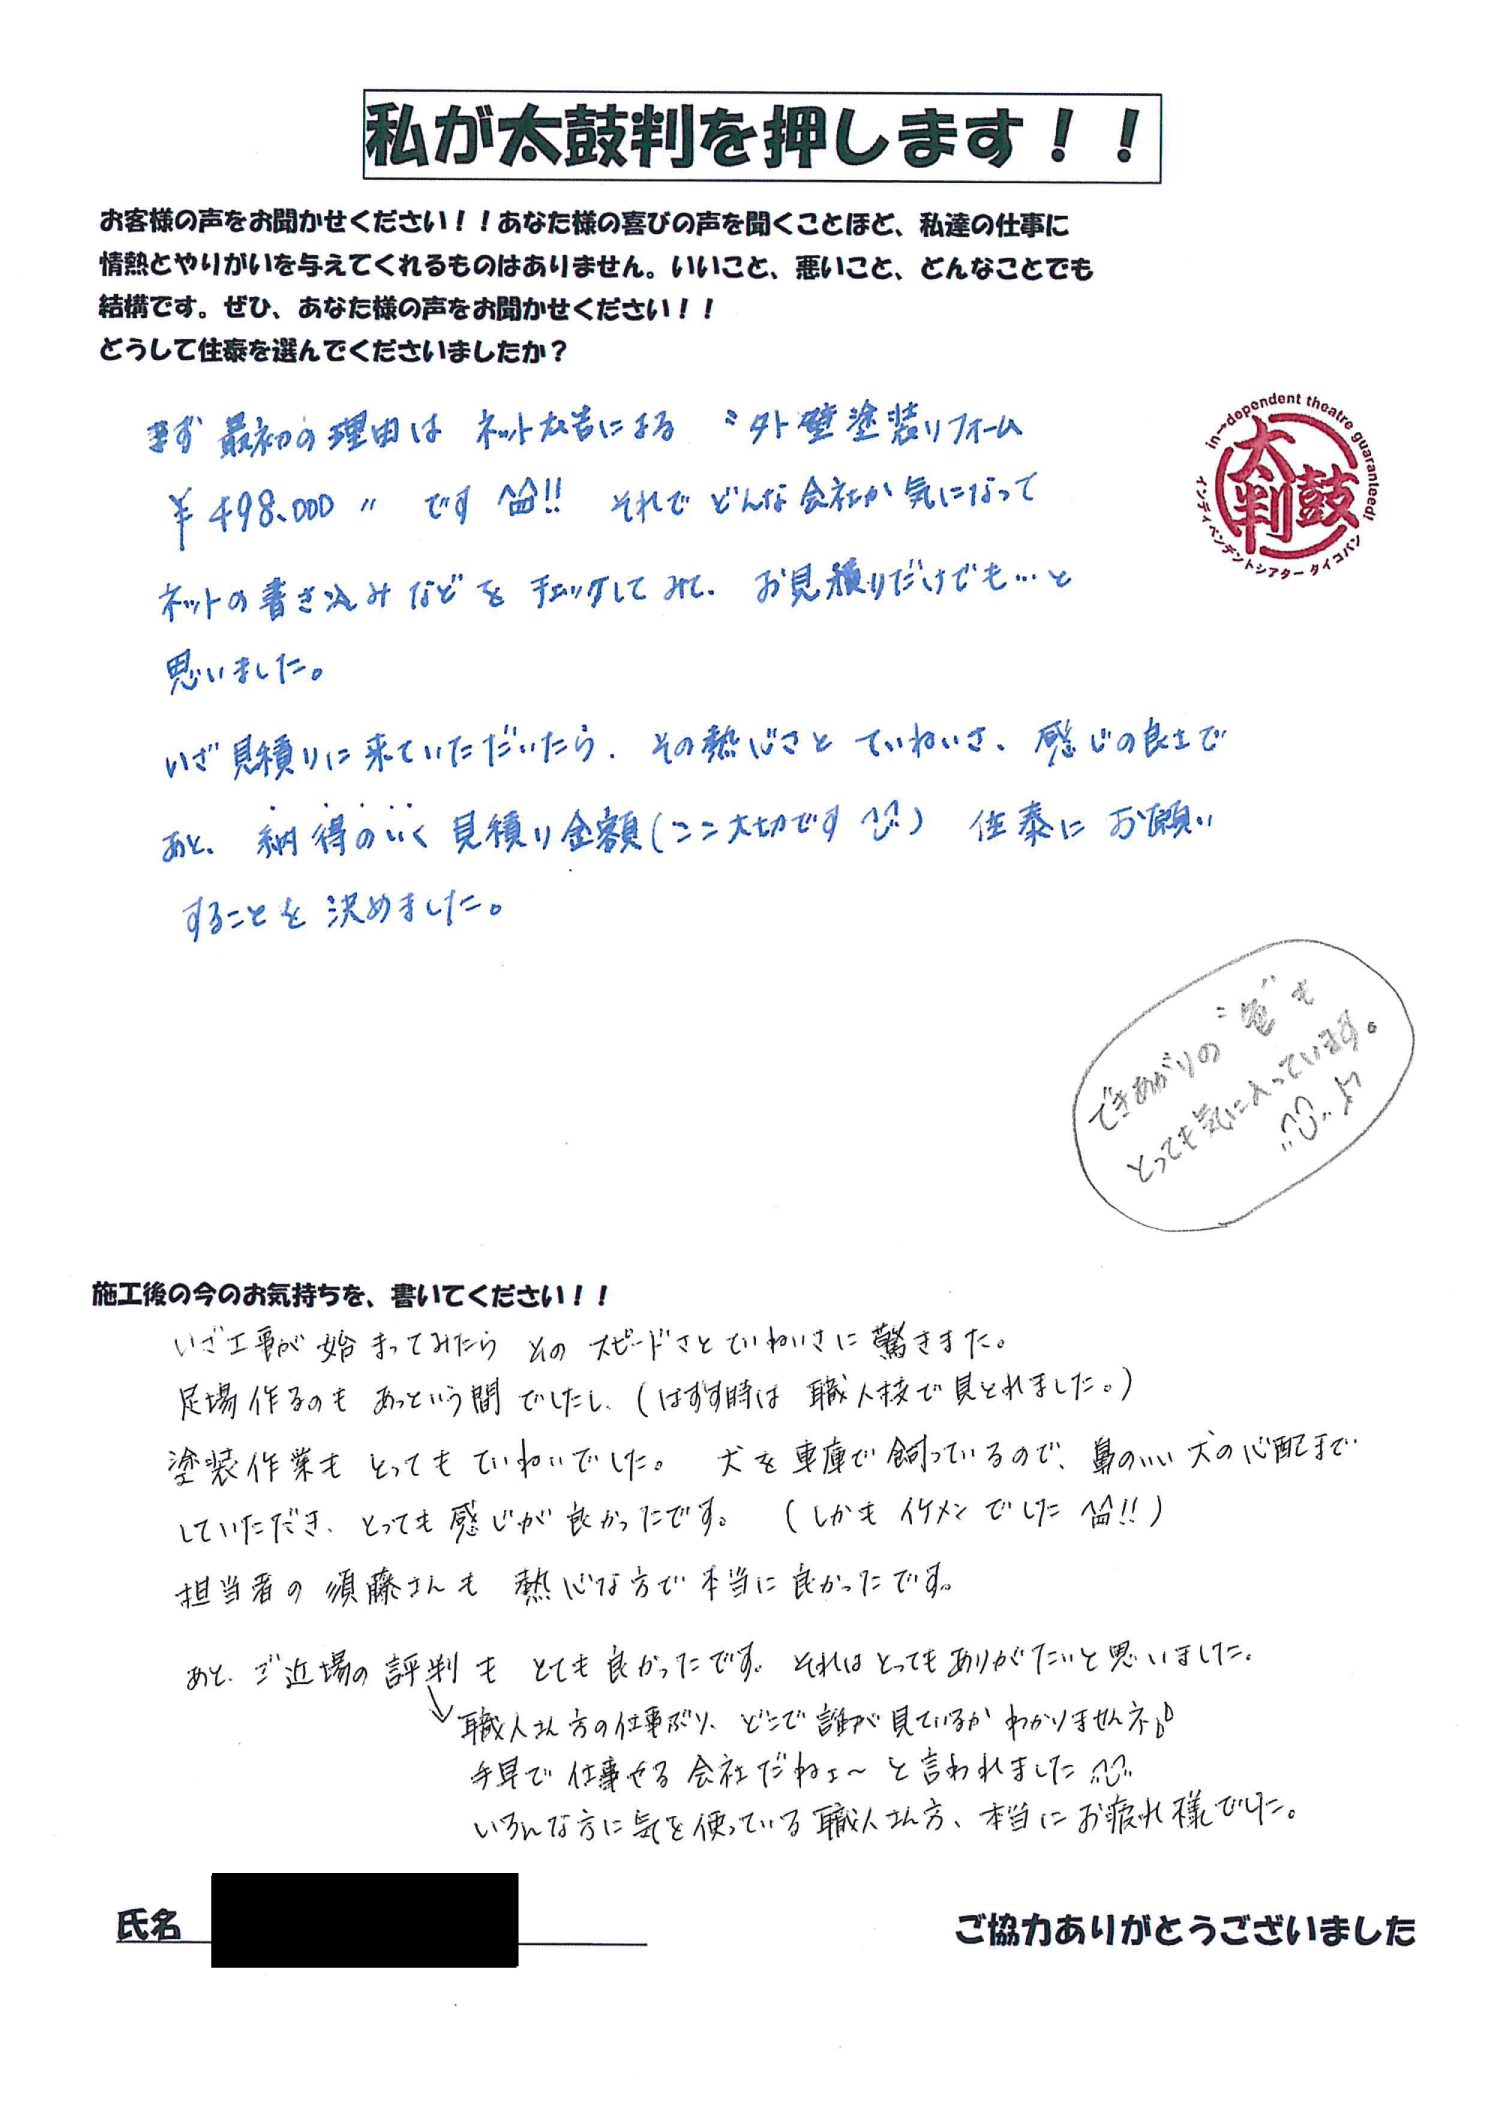 私が太鼓判を押します！！
お客様の声をお聞かせください！！あなた様の喜びの声を聞くことほど、私達の仕事に
情熱とやりがいを与えてくれるものはありません。いいこと、悪いこと、どんなことでも
結構です。ぜひ、あなた様の声をお聞かせください！！
どうして住泰を選んでくださいましたか？
in→dependent theatre guaranteed!
太鼓判
インディペンデントシアター タイコバン
まず 最初の理由は ネット広告による 〝外壁塗装リフォーム
￥498,000〃 です!! それで どんな会社か気になって
ネットの書き込みなどを チェックしてみて、お見積りだけでも…と
思いました。
いざ見積りに来ていただいたら、その熱心さと ていねいさ、感じの良さで
あと、納得のいく見積り金額(ここ大切です) 住泰にお願い
することを決めました。
できあがりの〝色〟も
とっても気に入っています。
施工後の今のお気持ちを、書いてください！！
いざ工事が始まってみたら そのスピードさとていねいさに驚きました。
足場作るのも あっという間でしたし、(はずす時は 職人技で見とれました。)
塗装作業も とってもていねいでした。 犬を車庫で飼っているので、鼻のいい犬の心配まで
していただき、とっても感じが良かったです。 (しかも イケメンでした!!)
担当者の須藤さんも 熱心な方で本当に良かったです。
あと、ご近場の評判も とても良かったです。それはとってもありがたいと思いました。
↘職人さん方の仕事ぶり、どこで誰が見ているかわかりませんネ♪
手早で仕事せる会社だねェ～と言われました
いろんな方に気を使っている職人さん方、本当にお疲れ様でした。
氏名
ご協力ありがとうございました